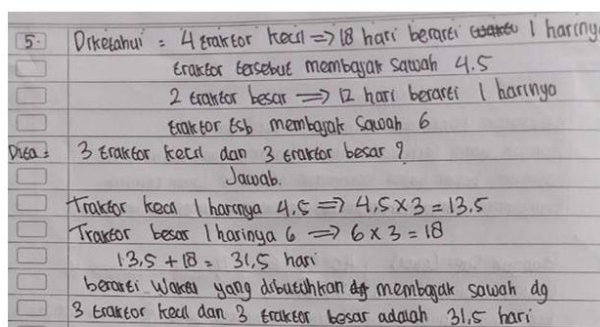 5. Diketahui = 4 traktor kecil => 18 hari berarti 1 harinya
traktor tersebut membajak sawah 4.5
2 traktor besar => 12 hari berarti 1 harinya
traktor tsb membajak sawah 6
Dita = 3 traktor kecil dan 3 traktor besar ?
Jawab.
Traktor kecil 1 harinya 4,5 => 4,5 x 3 = 13.5
Traktor besar 1 harinya 6 => 6 x 3 = 18
13,5 + 18 = 31,5 hari
berarti waktu yang dibutuhkan membajak sawah dg
3 traktor kecil dan 3 traktor besar adalah 31,5 hari